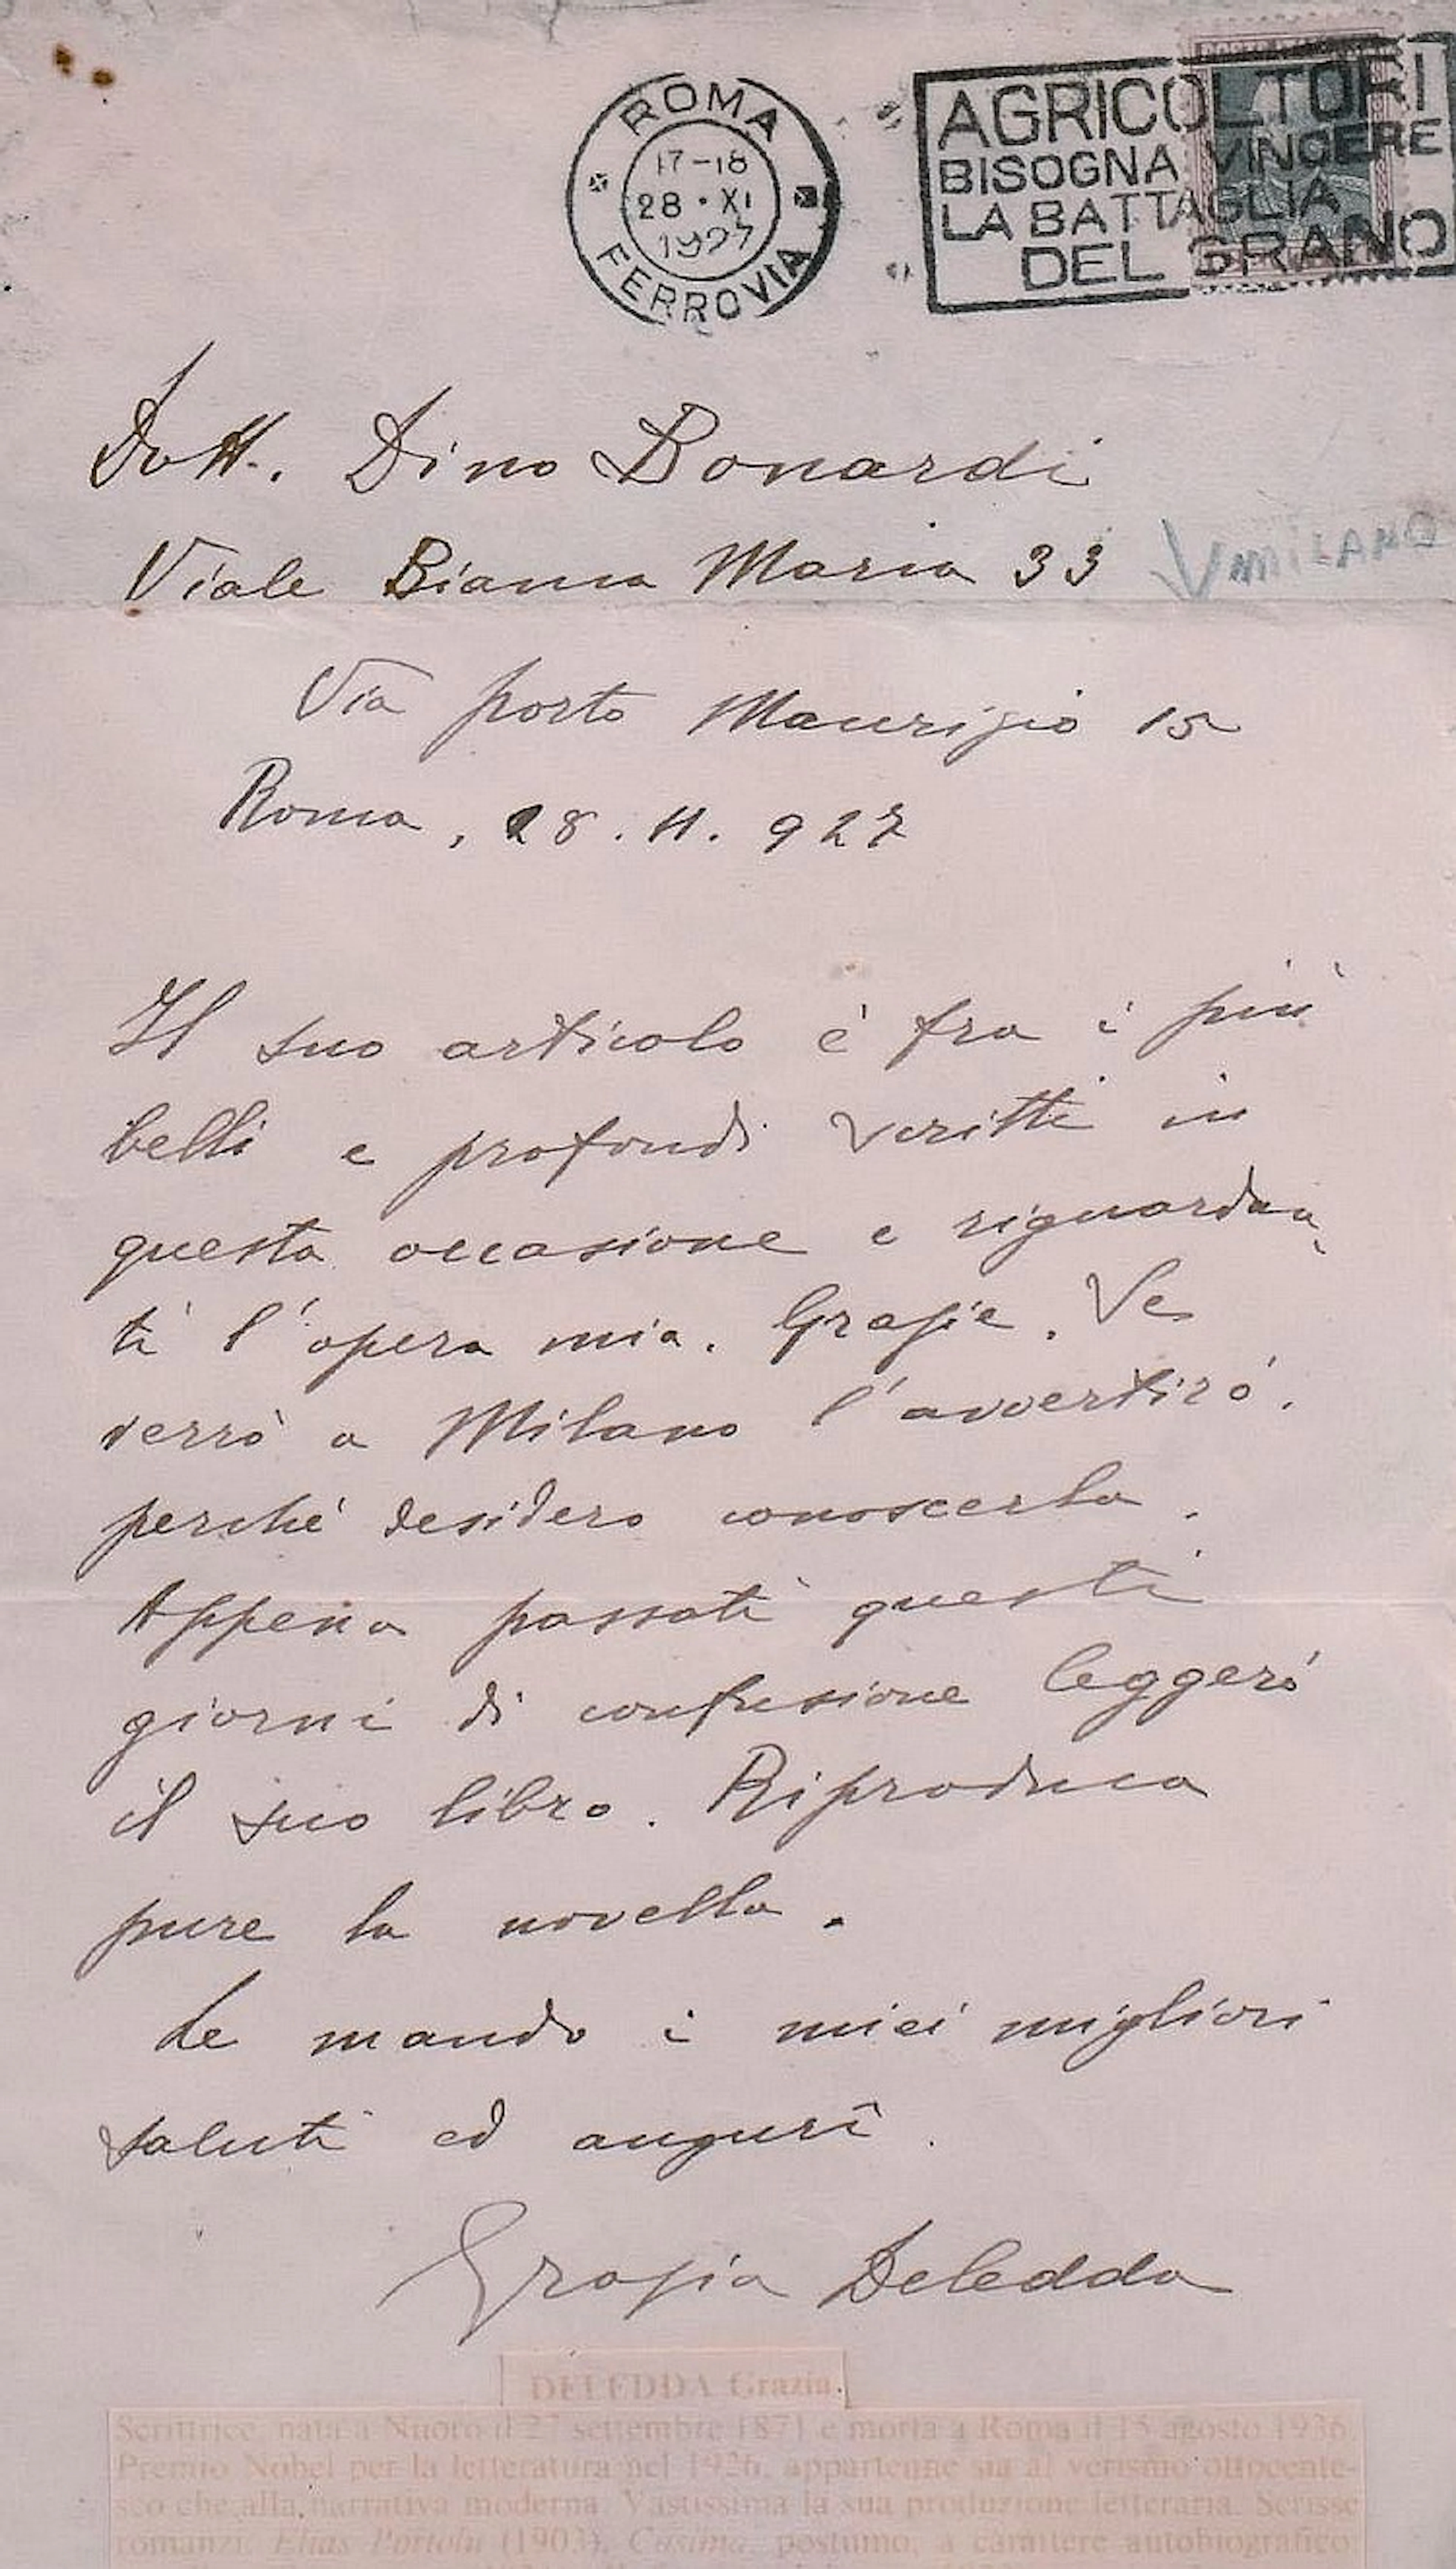 ROMA
17-18
28·XI
1927
FERROVIA
AGRICOLTORI
BISOGNA VINCERE
LA BATTAGLIA
DEL GRANO
Dott. Dino Bonardi
Viale Bianca Maria 33 MILANO
Via porto Maurizio 15
Roma, 28. 11. 927
Il suo articolo è fra i più
belli e profondi scritti in
questa occasione e riguardan-
ti l'opera mia. Grazie. Se
verrò a Milano l'avvertirò.
perché desidero conoscerla.
Appena passati questi
giorni di confusione leggerò
il suo libro. Riproduca
pure la novella.
Le mando i miei migliori
saluti ed augurî.
Grazia Deledda
DELEDDA Grazia.
Scrittrice, nata a Nuoro il 27 settembre 1871 e morta a Roma il 15 agosto 1936.
Premio Nobel per la letteratura nel 1926, appartenne sia al verismo ottocente-
sco che alla narrativa moderna. Vastissima la sua produzione letteraria. Scrisse
romanzi: Elias Portolu (1903), Cosima, postumo, a carattere autobiografico